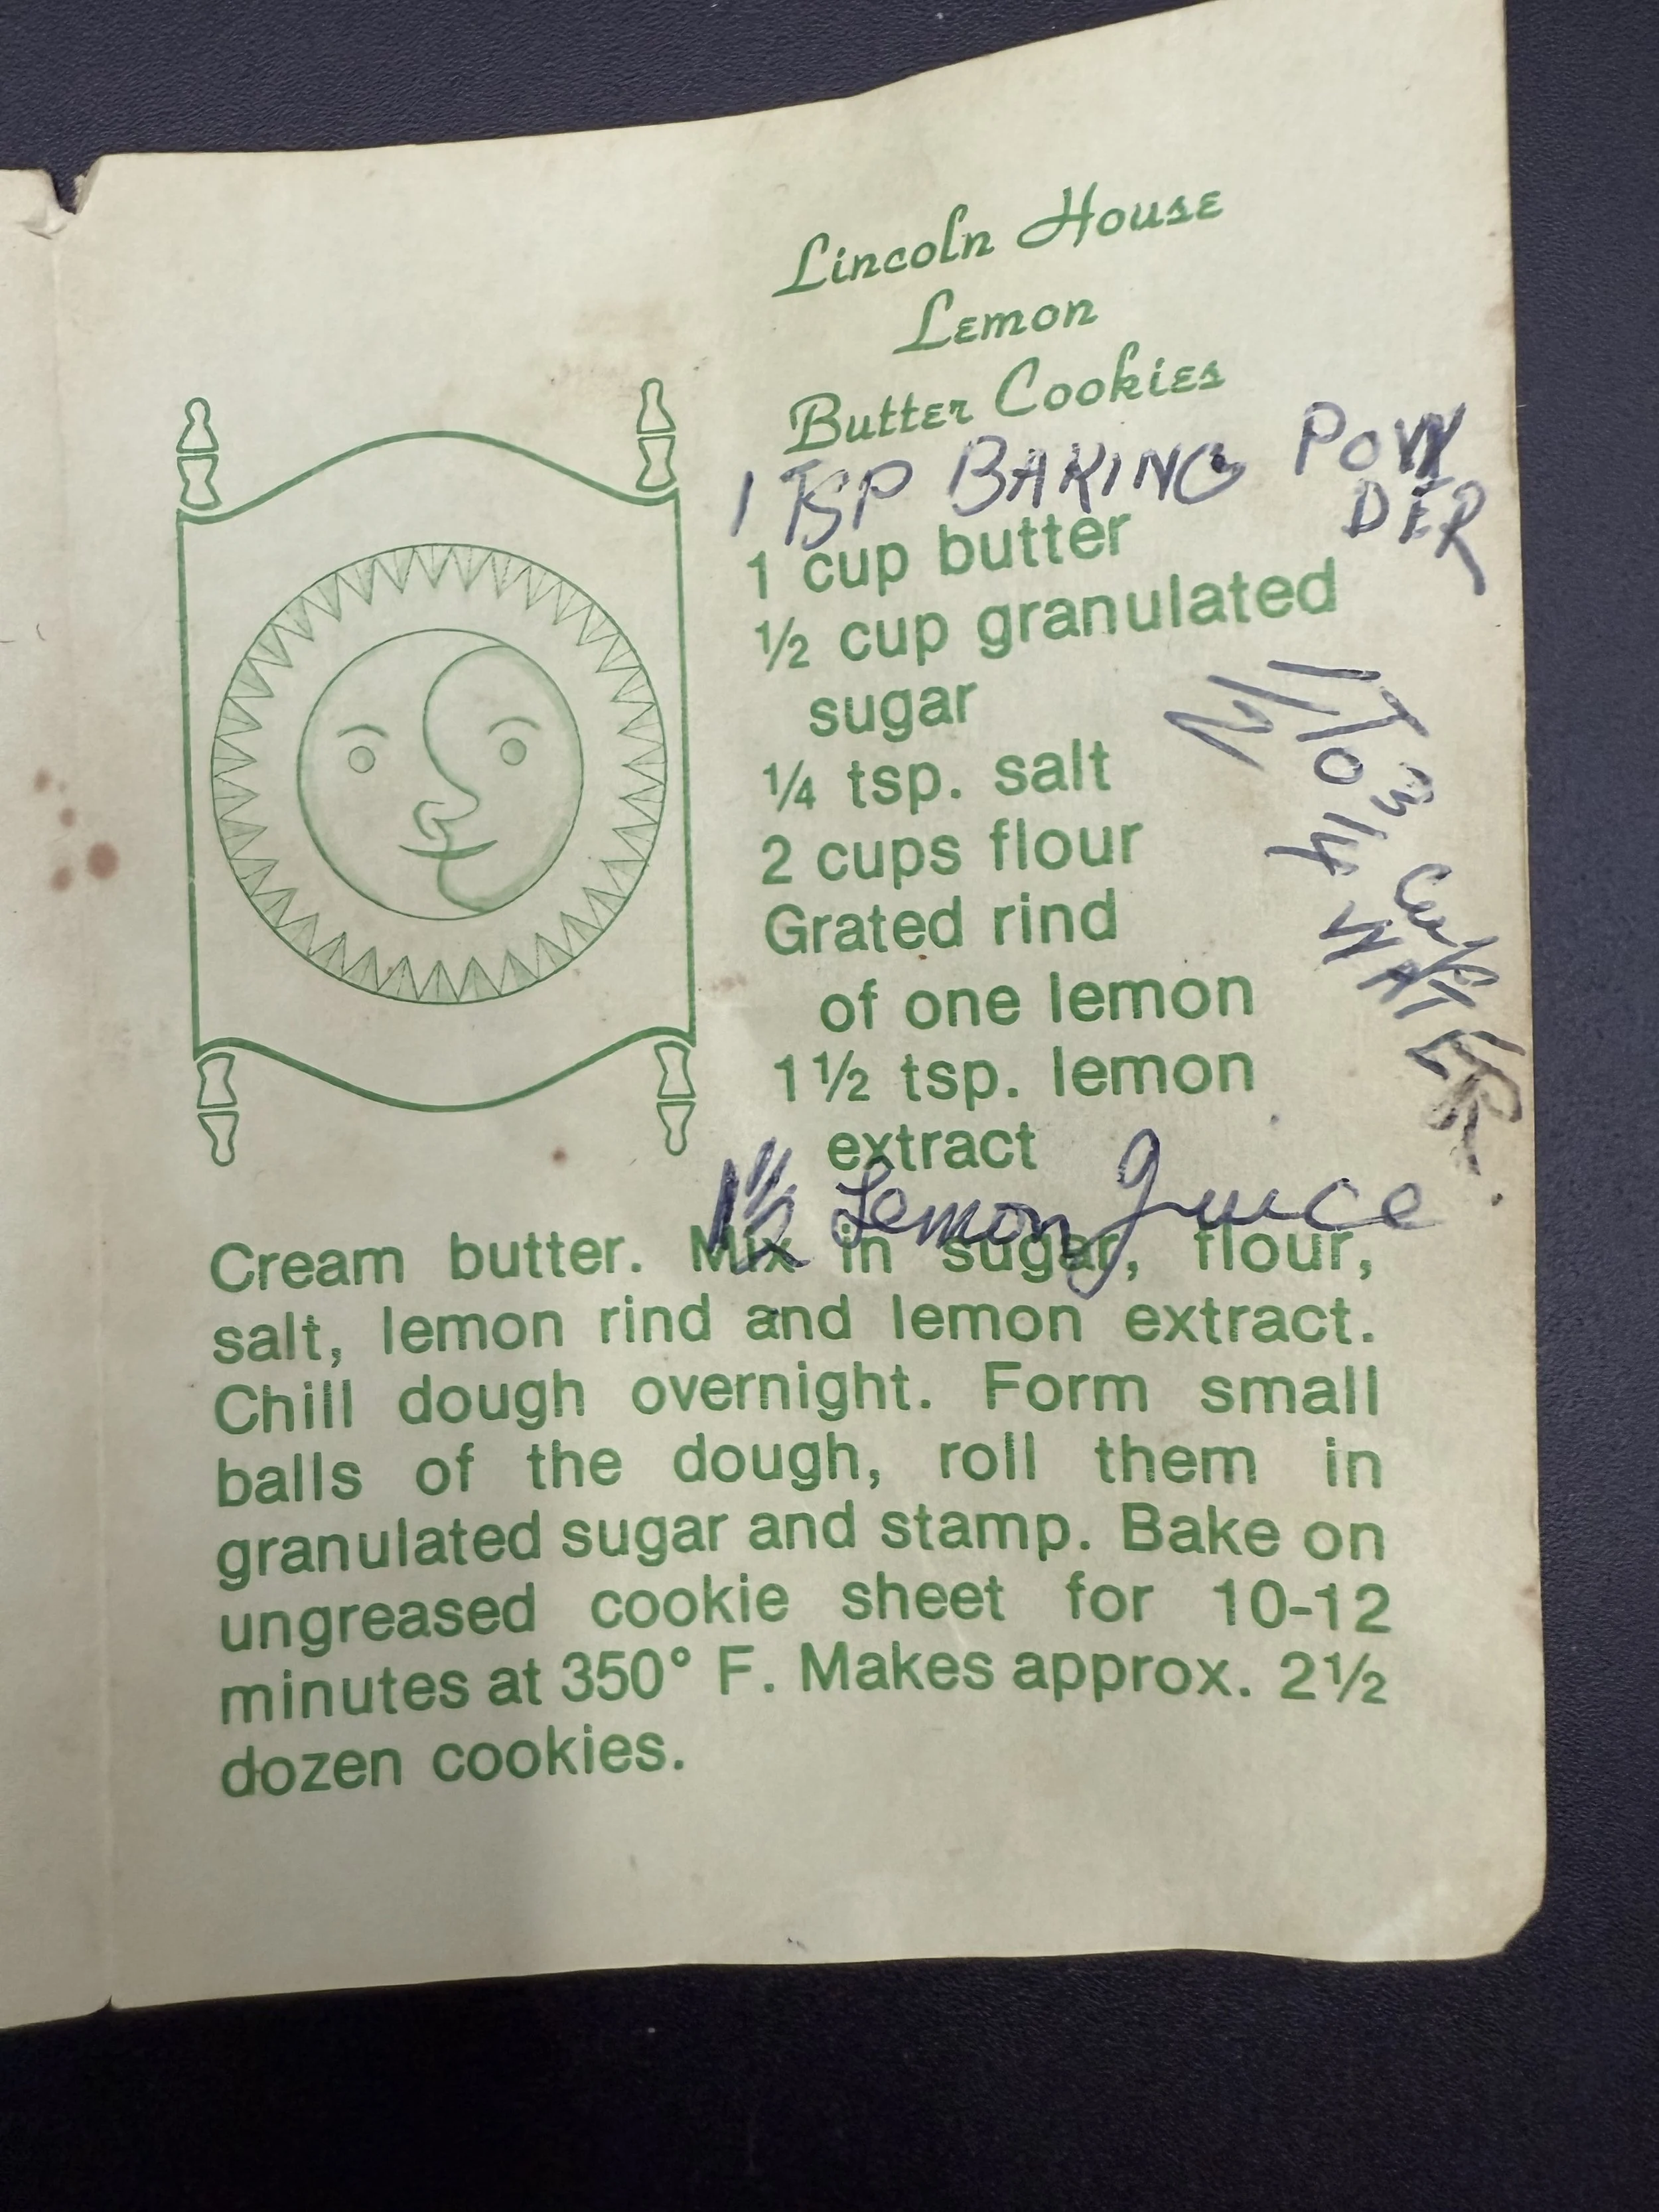 Lincoln House
Lemon
Butter Cookies
1 TSP BAKING POW
DER
1 cup butter
½ cup granulated
sugar
¼ tsp. salt
2 cups flour
Grated rind
of one lemon
1½ tsp. lemon
extract
1½ Lemon Juice
Cup
WATER.
Cream butter. Mix in sugar, flour,
salt, lemon rind and lemon extract.
Chill dough overnight. Form small
balls of the dough, roll them in
granulated sugar and stamp. Bake on
ungreased cookie sheet for 10-12
minutes at 350° F. Makes approx. 2½
dozen cookies.